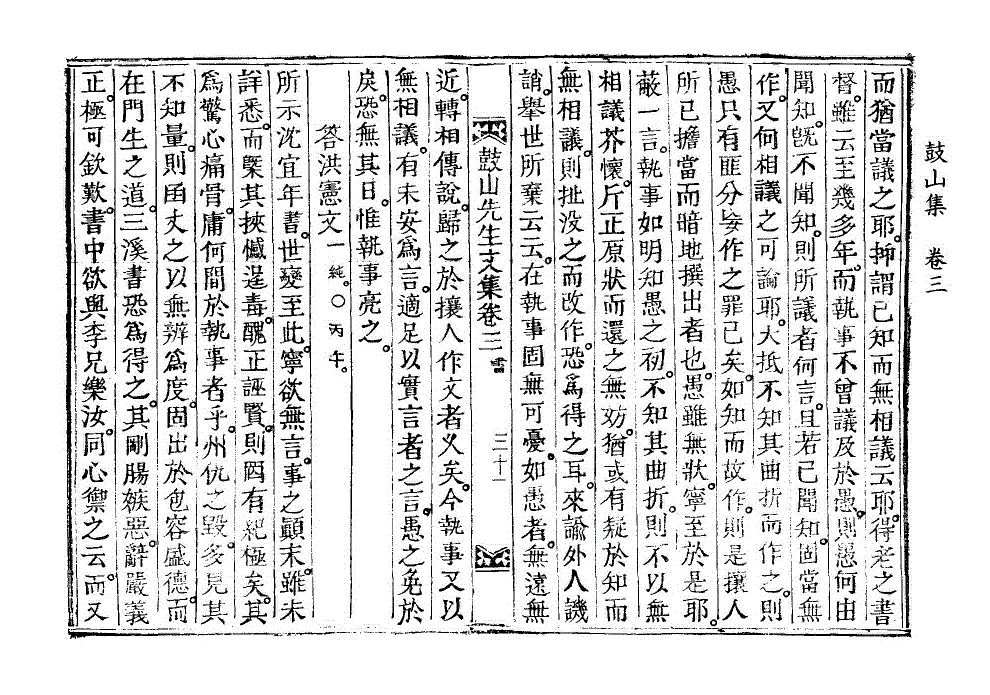 鼓山集　卷三
而猶當議之耶抑謂已知而無相議云耶得老之書
督雖云至幾多年而執事不曾議及於愚則愚何由
聞知旣不聞知則所議者何言且若已聞知固當無
作又何相議之可論耶大抵不知其曲折而作之則
愚只有匪分妄作之罪已矣如知而故作則是攘人
所已擔當而暗地撰出者也愚雖無狀寧至於是耶
蔽一言執事如明知愚之初不知其曲折則不以無
相議芥懷斤正原狀而還之無妨猶或有疑於知而
無相議則扯没之而改作恐爲得之耳來諭外人譏
誚擧世所棄云云在執事固無可憂如愚者無遠無
鼓山先生文集卷三 書 三十一
近轉相傳說歸之於攘人作文者义矣今執事又以
無相議有未安爲言適足以實言者之言愚之免於
戾恐無其日惟執事亮之
答洪憲文一純○丙午
所示沈宜年書世變至此寧欲無言事之顚末雖未
詳悉而槩其挾憾逞毒醜正誣賢則罔有紀極矣其
爲驚心痛骨庸何間於執事者乎州仇之毁多見其
不知量則函丈之以無辨爲度固出於包容盛德而
在門生之道三溪書恐爲得之其剛腸嫉惡辭嚴義
正極可欽歎書中欲與李兄樂汝同心禦之云而又